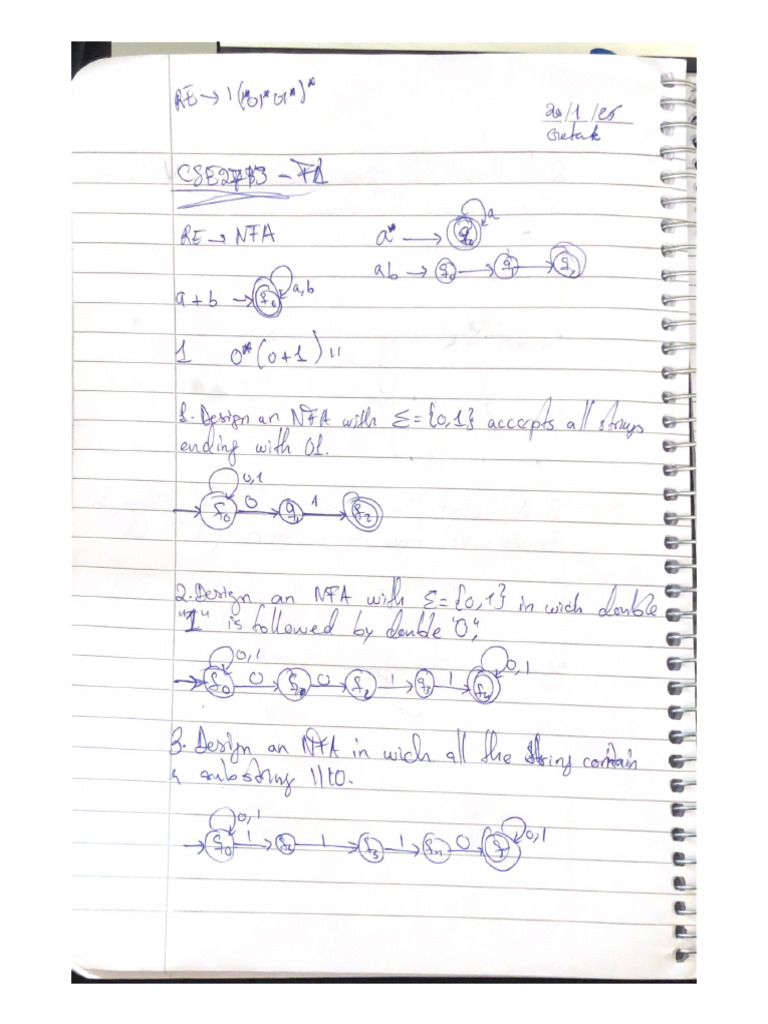 RE → 1(
20/1/25
RE → NFA
a* → q0 a
ab → q0 q1 q2
a+b → q0 a,b
1 0*(0+1)11
1. Design an NFA with Σ = {0,1} accepts all strings
ending with 01.
0,1
q0 0 q1 1 q2
2. Design an NFA with Σ = {0,1} in wich double
"1" is followed by double "0",
0,1 0,1
q0 0 0 q2 1 q3 1 q4
3. Design an NFA in wich all the string contain
a substring 1110.
0,1 0,1
q0 1 q2 1 q3 1 q4 0